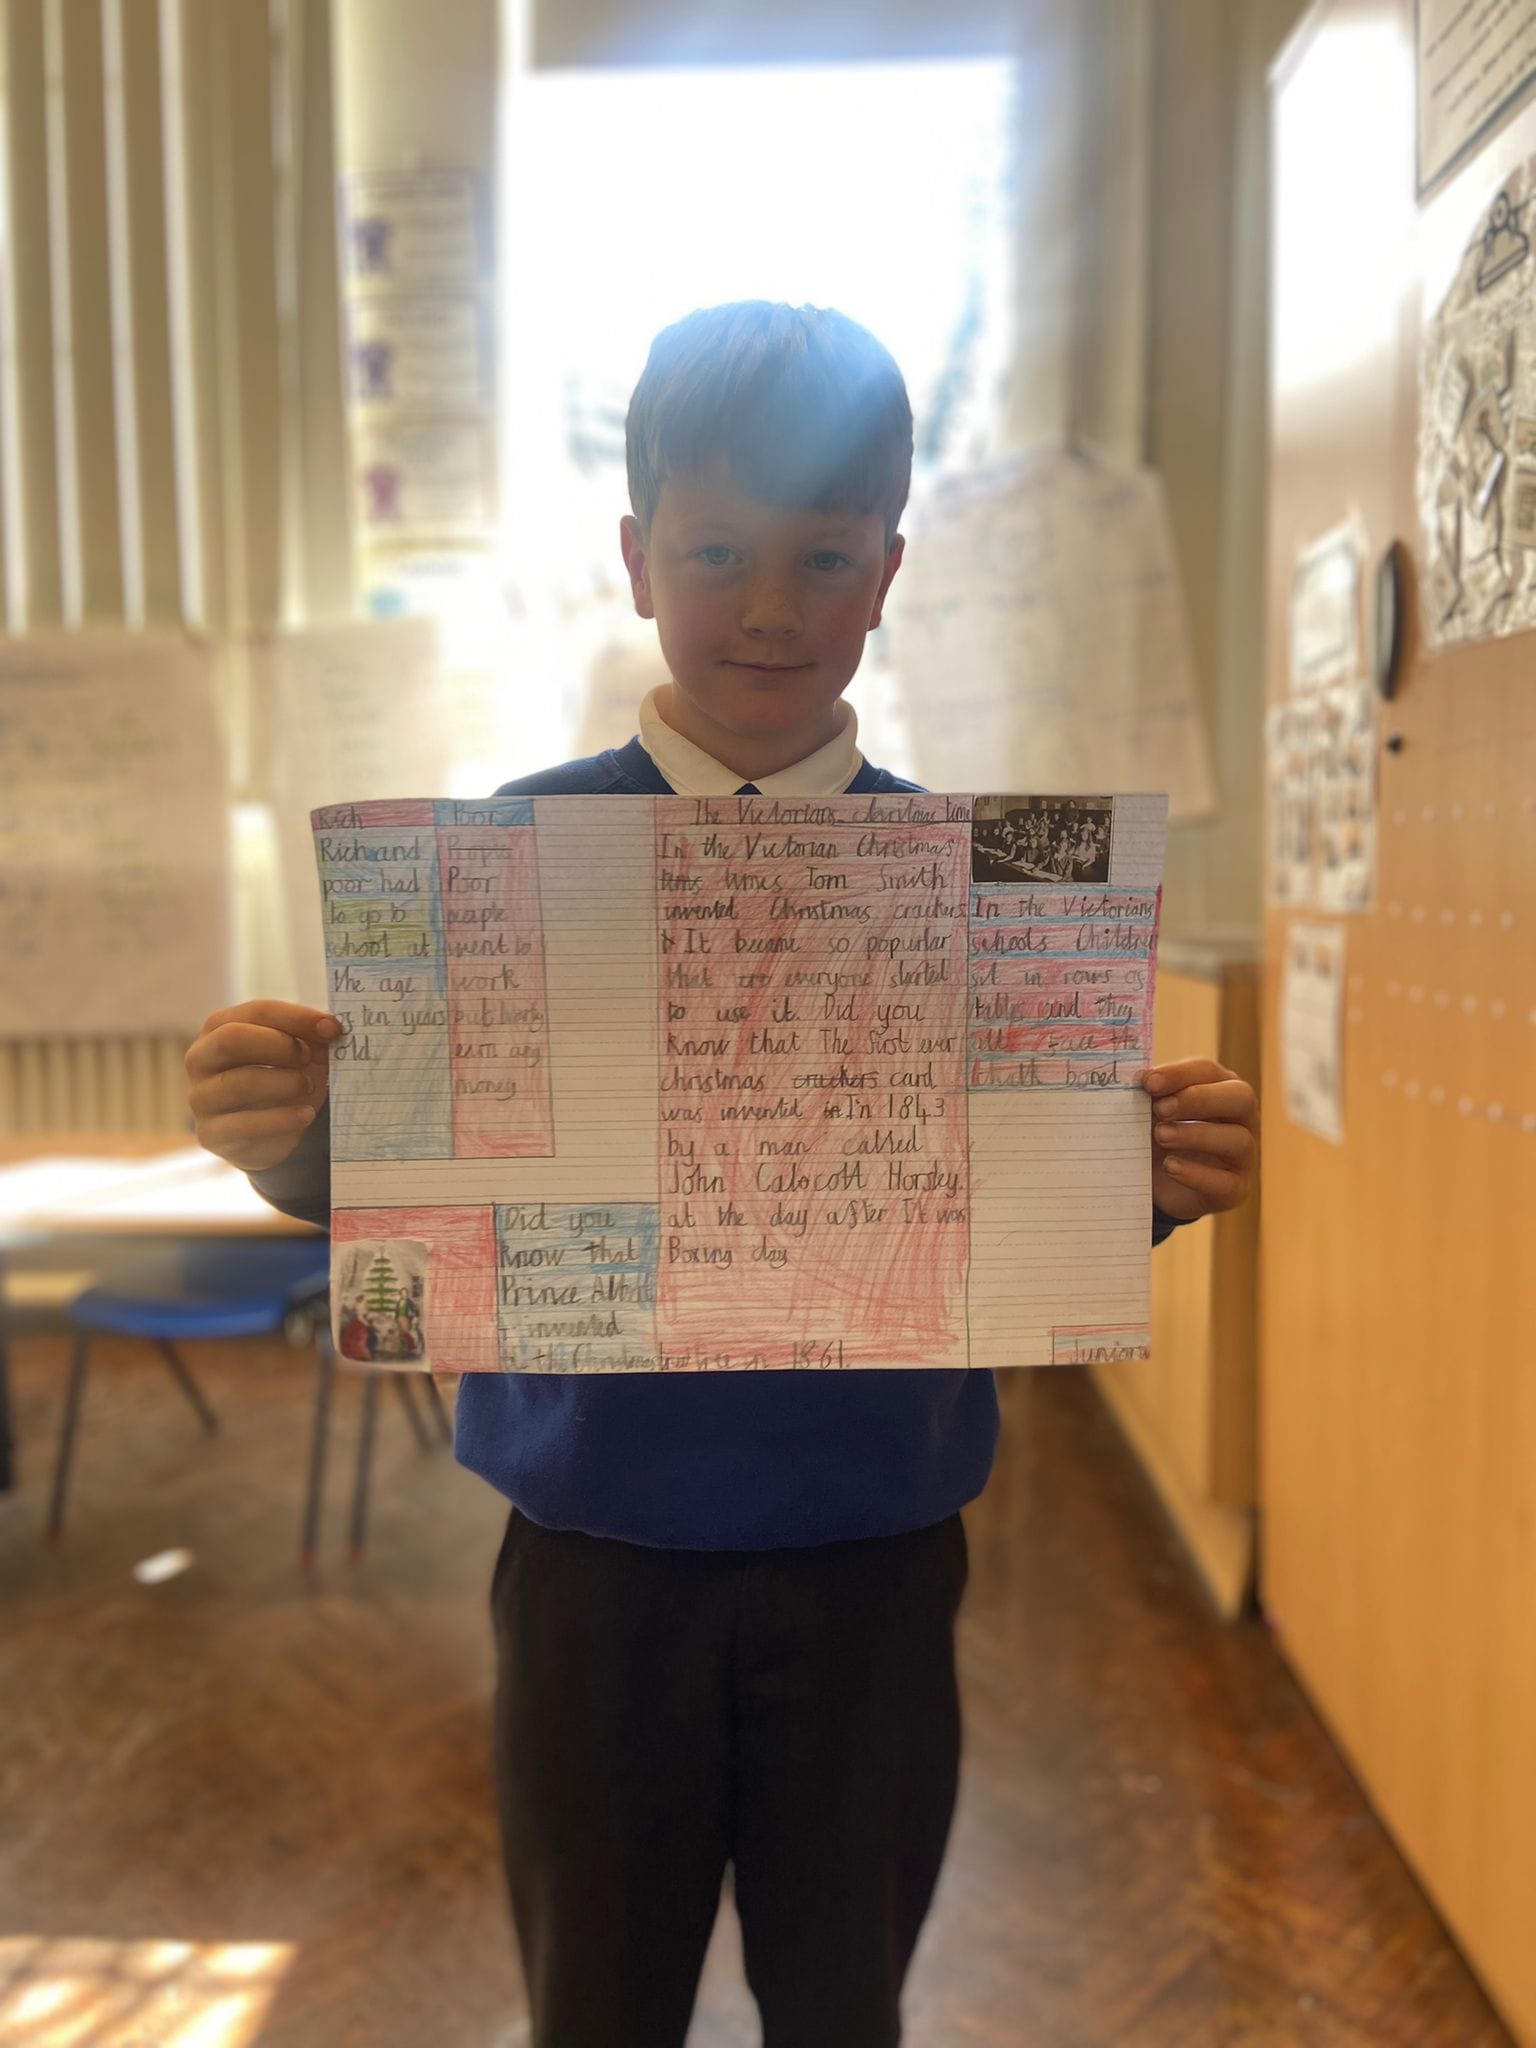 Rich
Rich and
poor had
to go to
school at
the age
of ten years
old.
Poor
People
Poor
people
went to
work
but
earn any
money
Did you
know that
Prince Albert
invented
the Christmas tree in 1861.
The Victorians Christmas time
In the Victorian Christmas
times Tom Smith
invented Christmas crackers
It became so popurlar
that everyone started
to use it. Did you
know that The first ever
christmas crackers card
was invented in In 1843
by a man called
John Calocott Horsley.
at the day after It was
Boxing day
In the Victorians
schools Children
sit in rows of
tables and they
all face the
chalk bored
Juniors